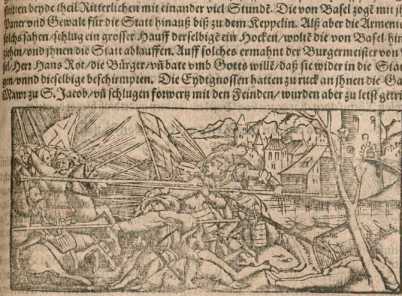 ten beyde theil Ritterlichen mit einander viel Stunde. Die von Basel zoge mit
Paner vnd Gewalt für die Statt hinauß biß zu dem Keppelin. Alß aber die Armeni
solchs sahen/schlug ein grosser Hauff derselbigē ein Hocken/woltē die von Basel hin
gehen/vnd jhnen die Statt ablauffen. Auff solches ermahnt der Burgermeister von
sel/Her Hans Rot/die Bürger/vn̄ bate vmb Gotts willē/daß sie wider in die Stat
gen/vnnd dieselbige beschirmpten. Die Eydtgnossen hatten zu ruck an jhnen die Ga
Mawr zu S. Jacob/vn̄ schlugen fotwertz mit den Feinden/wurden aber zu letst getri